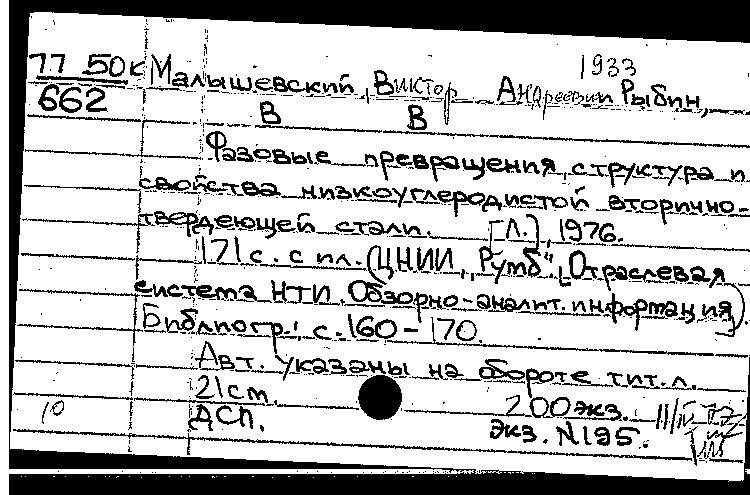 1933
77 50к Малышевский, Виктор Андреевич Рыбин,
662 В В
Фазовые превращения, структура и
свойства низкоуглеродистой вторично-
твердеющей стали. [Л.], 1976.
171 с. с ил. (ЦНИИ „Румб". Отраслевая
система НТИ. Обзорно-аналит. информация)
Библиогр.: с. 160-170.
Авт. указаны на обороте тит. л.
21 см. 200 экз.
10 ДСП. Экз. N195.